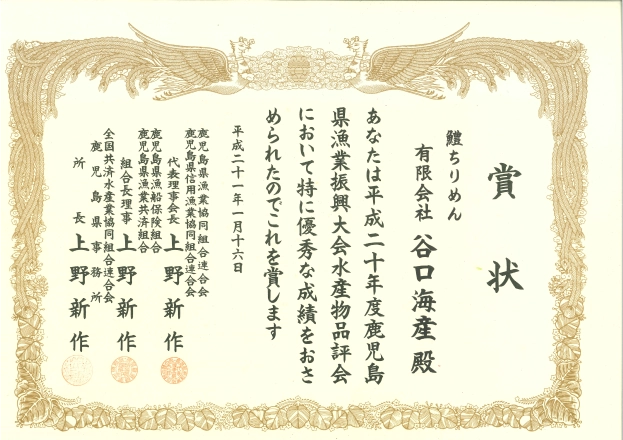 賞状
鱧ちりめん
有限会社 谷口海産 殿
あなたは平成二十年度鹿児島
県漁業振興大会水産物品評会
において特に優秀な成績をおさ
められたのでこれを賞します
平成二十一年一月十六日
鹿児島県漁業協同組合連合会
鹿児島県信用漁業協同組合連合会
代表理事会長 上野新作
鹿児島県漁船保険組合
鹿児島県漁業共済組合
組合長理事 上野新作
全国共済水産業協同組合連合会
鹿児島県事務所
所長 上野新作